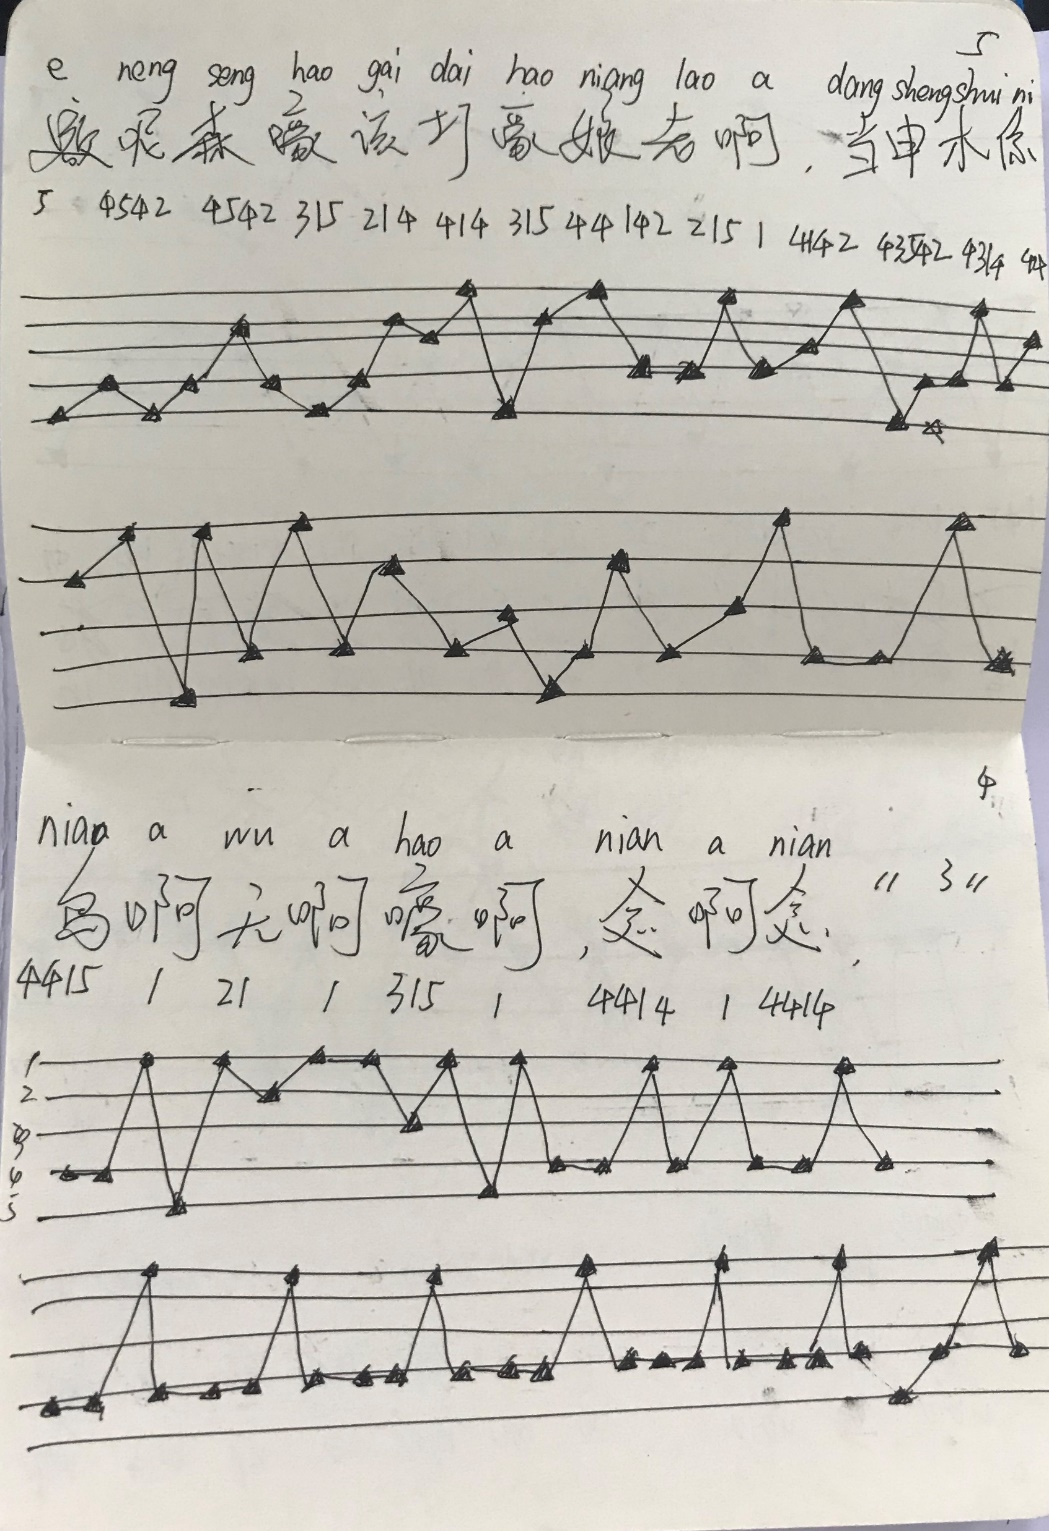 5
e neng seng hao gai dai hao niang lao a dang sheng shui ni
呢森嚎该打豪娘老啊,当申水係
5 4542 4542 315 214 414 315 44 142 215 1 4142 43542 4314 44
4
niao a wu a hao a nian a nian
鸟啊无啊嚎啊,念啊念, “3”
4415 1 21 1 315 1 4414 1 4414
1
2
3
4
5